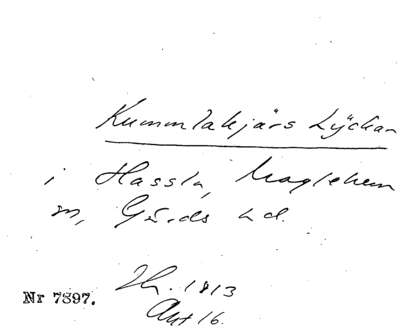 Kummlakjärs Lyckan
i Hassla, Maglehem
sn, Gärds hd.
Th. 1813
Akt 16.
Nr 7897.